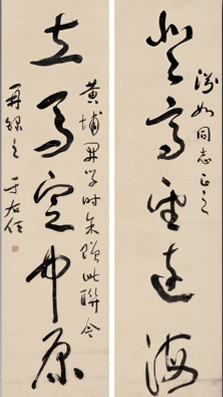 如同志正之
登高望遠海
黃埔開學時贈此聯今
立馬定中原
再錄之 于右任